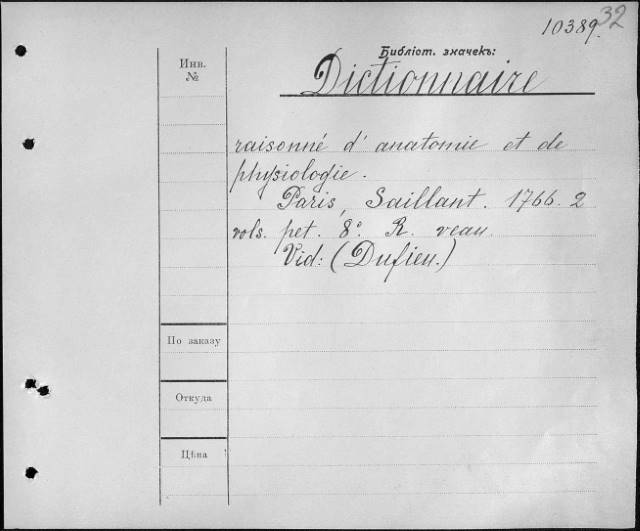 32
10389.
Библіот. значекъ:
Инв.
№
Dictionnaire
raisonné d'anatomie et de
physiologie.
Paris, Saillant. 1766. 2
vols. pet. 8°. R. veau.
Vid: (Dufieu.)
По заказу
Откуда
Цѣна